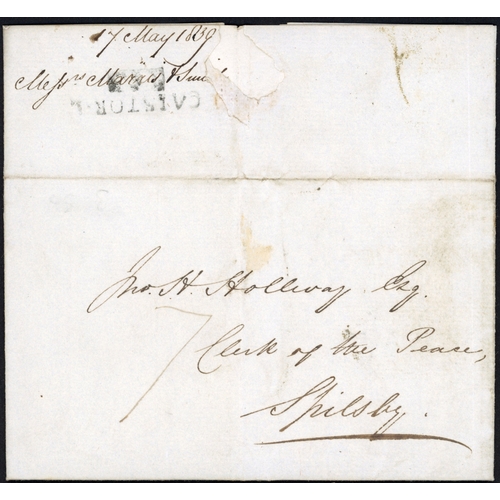 17 May 1839
Messrs Marris & Smith
CAISTOR
Jno. H. Hollway Esq.
7
Clerk of the Peace,
Spilsby.